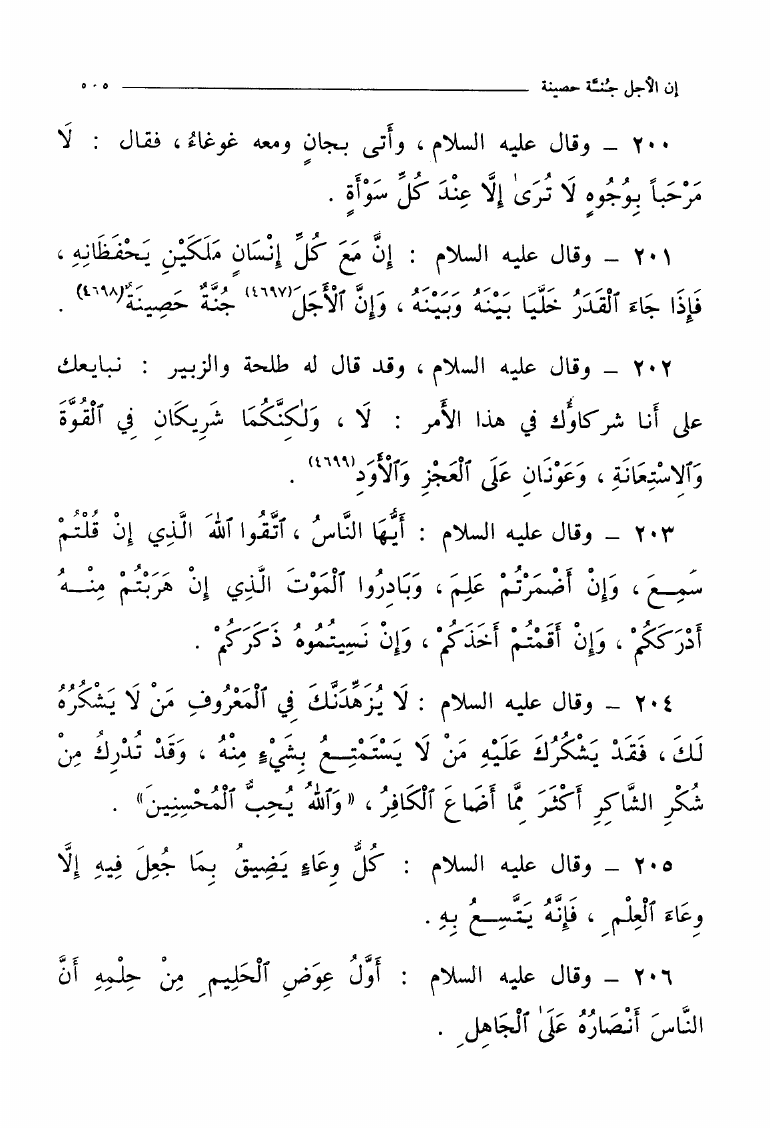 إن الأجل جُنَّة حصينة ٥٠٥
٢٠٠ – وقال عليه السلام، وأُتي بجانٍ ومعه غوغاءُ، فقال : لَا
مَرْحَباً بِوُجُوهٍ لَا تُرَىٰ إِلَّا عِنْدَ كُلِّ سَوْأَةٍ .
٢٠١ – وقال عليه السلام : إِنَّ مَعَ كُلِّ إِنْسَانٍ مَلَكَيْنِ يَحْفَظَانِهِ ،
فَإِذَا جَاءَ ٱلْقَدَرُ خَلَّيَا بَيْنَهُ وَبَيْنَهُ ، وَإِنَّ ٱلْأَجَلَ(٤٦٩٧) جُنَّةٌ حَصِينَةٌ(٤٦٩٨) .
٢٠٢ – وقال عليه السلام، وقد قال له طلحة والزبير : نبايعك
على أَنا شركاؤُك في هذا الأَمر : لَا ، وَلٰكِنَّكُمَا شَرِيكَانِ فِي ٱلْقُوَّةِ
وَٱلِاسْتِعَانَةِ ، وَعَوْنَانِ عَلَى ٱلْعَجْزِ وَٱلْأَوَدِ(٤٦٩٩) .
٢٠٣ – وقال عليه السلام : أَيُّهَا النَّاسُ ، ٱتَّقُوا ٱللهَ الَّذِي إِنْ قُلْتُمْ
سَمِعَ ، وَإِنْ أَضْمَرْتُمْ عَلِمَ ، وَبَادِرُوا ٱلْمَوْتَ الَّذِي إِنْ هَرَبْتُمْ مِنْهُ
أَدْرَكَكُمْ ، وَإِنْ أَقَمْتُمْ أَخَذَكُمْ ، وَإِنْ نَسِيتُمُوهُ ذَكَرَكُمْ .
٢٠٤ – وقال عليه السلام : لَا يُزَهِّدَنَّكَ فِي ٱلْمَعْرُوفِ مَنْ لَا يَشْكُرُهُ
لَكَ ، فَقَدْ يَشْكُرُكَ عَلَيْهِ مَنْ لَا يَسْتَمْتِعُ بِشَيْءٍ مِنْهُ ، وَقَدْ تُدْرِكُ مِنْ
شُكْرِ الشَّاكِرِ أَكْثَرَ مِمَّا أَضَاعَ ٱلْكَافِرُ ، «وَٱللهُ يُحِبُّ ٱلْمُحْسِنِينَ» .
٢٠٥ – وقال عليه السلام : كُلُّ وِعَاءٍ يَضِيقُ بِمَا جُعِلَ فِيهِ إِلَّا
وِعَاءَ ٱلْعِلْمِ ، فَإِنَّهُ يَتَّسِعُ بِهِ .
٢٠٦ – وقال عليه السلام : أَوَّلُ عِوَضِ ٱلْحَلِيمِ مِنْ حِلْمِهِ أَنَّ
النَّاسَ أَنْصَارُهُ عَلَىٰ ٱلْجَاهِلِ .